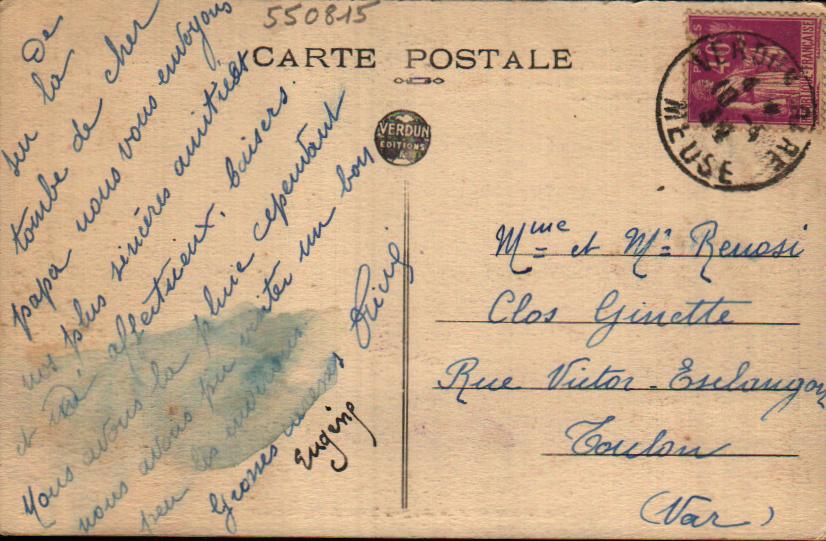 550815
CARTE POSTALE
VERDUN
EDITIONS
De
sur la
tombe de cher
papa nous vous envoyons
nos plus sincères amitiés
et affectueux baisers.
Nous avons la pluie cependant
nous avons pu visiter un bon
peu les environs
Grosses caresses
Eugène
POSTES
40
VERDUN
MEUSE
Mme et Mr Renosi
Clos Ginette
Rue Victor-Esclangon
Toulon
(Var)